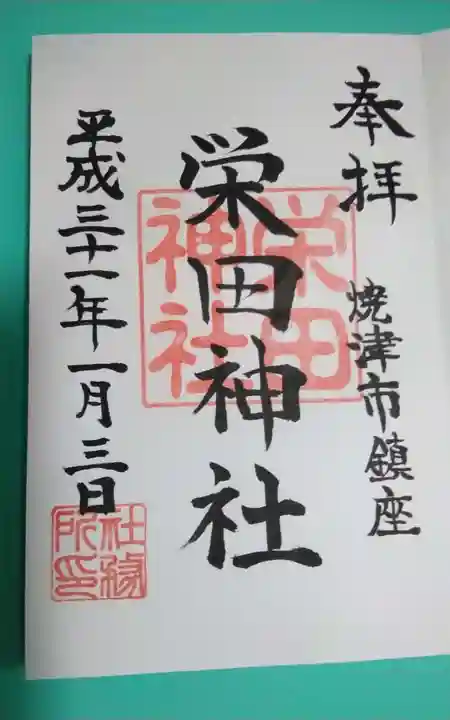 奉拝
焼津市鎮座
栄田神社
栄田
神社
平成三十一年一月三日
社務
所印